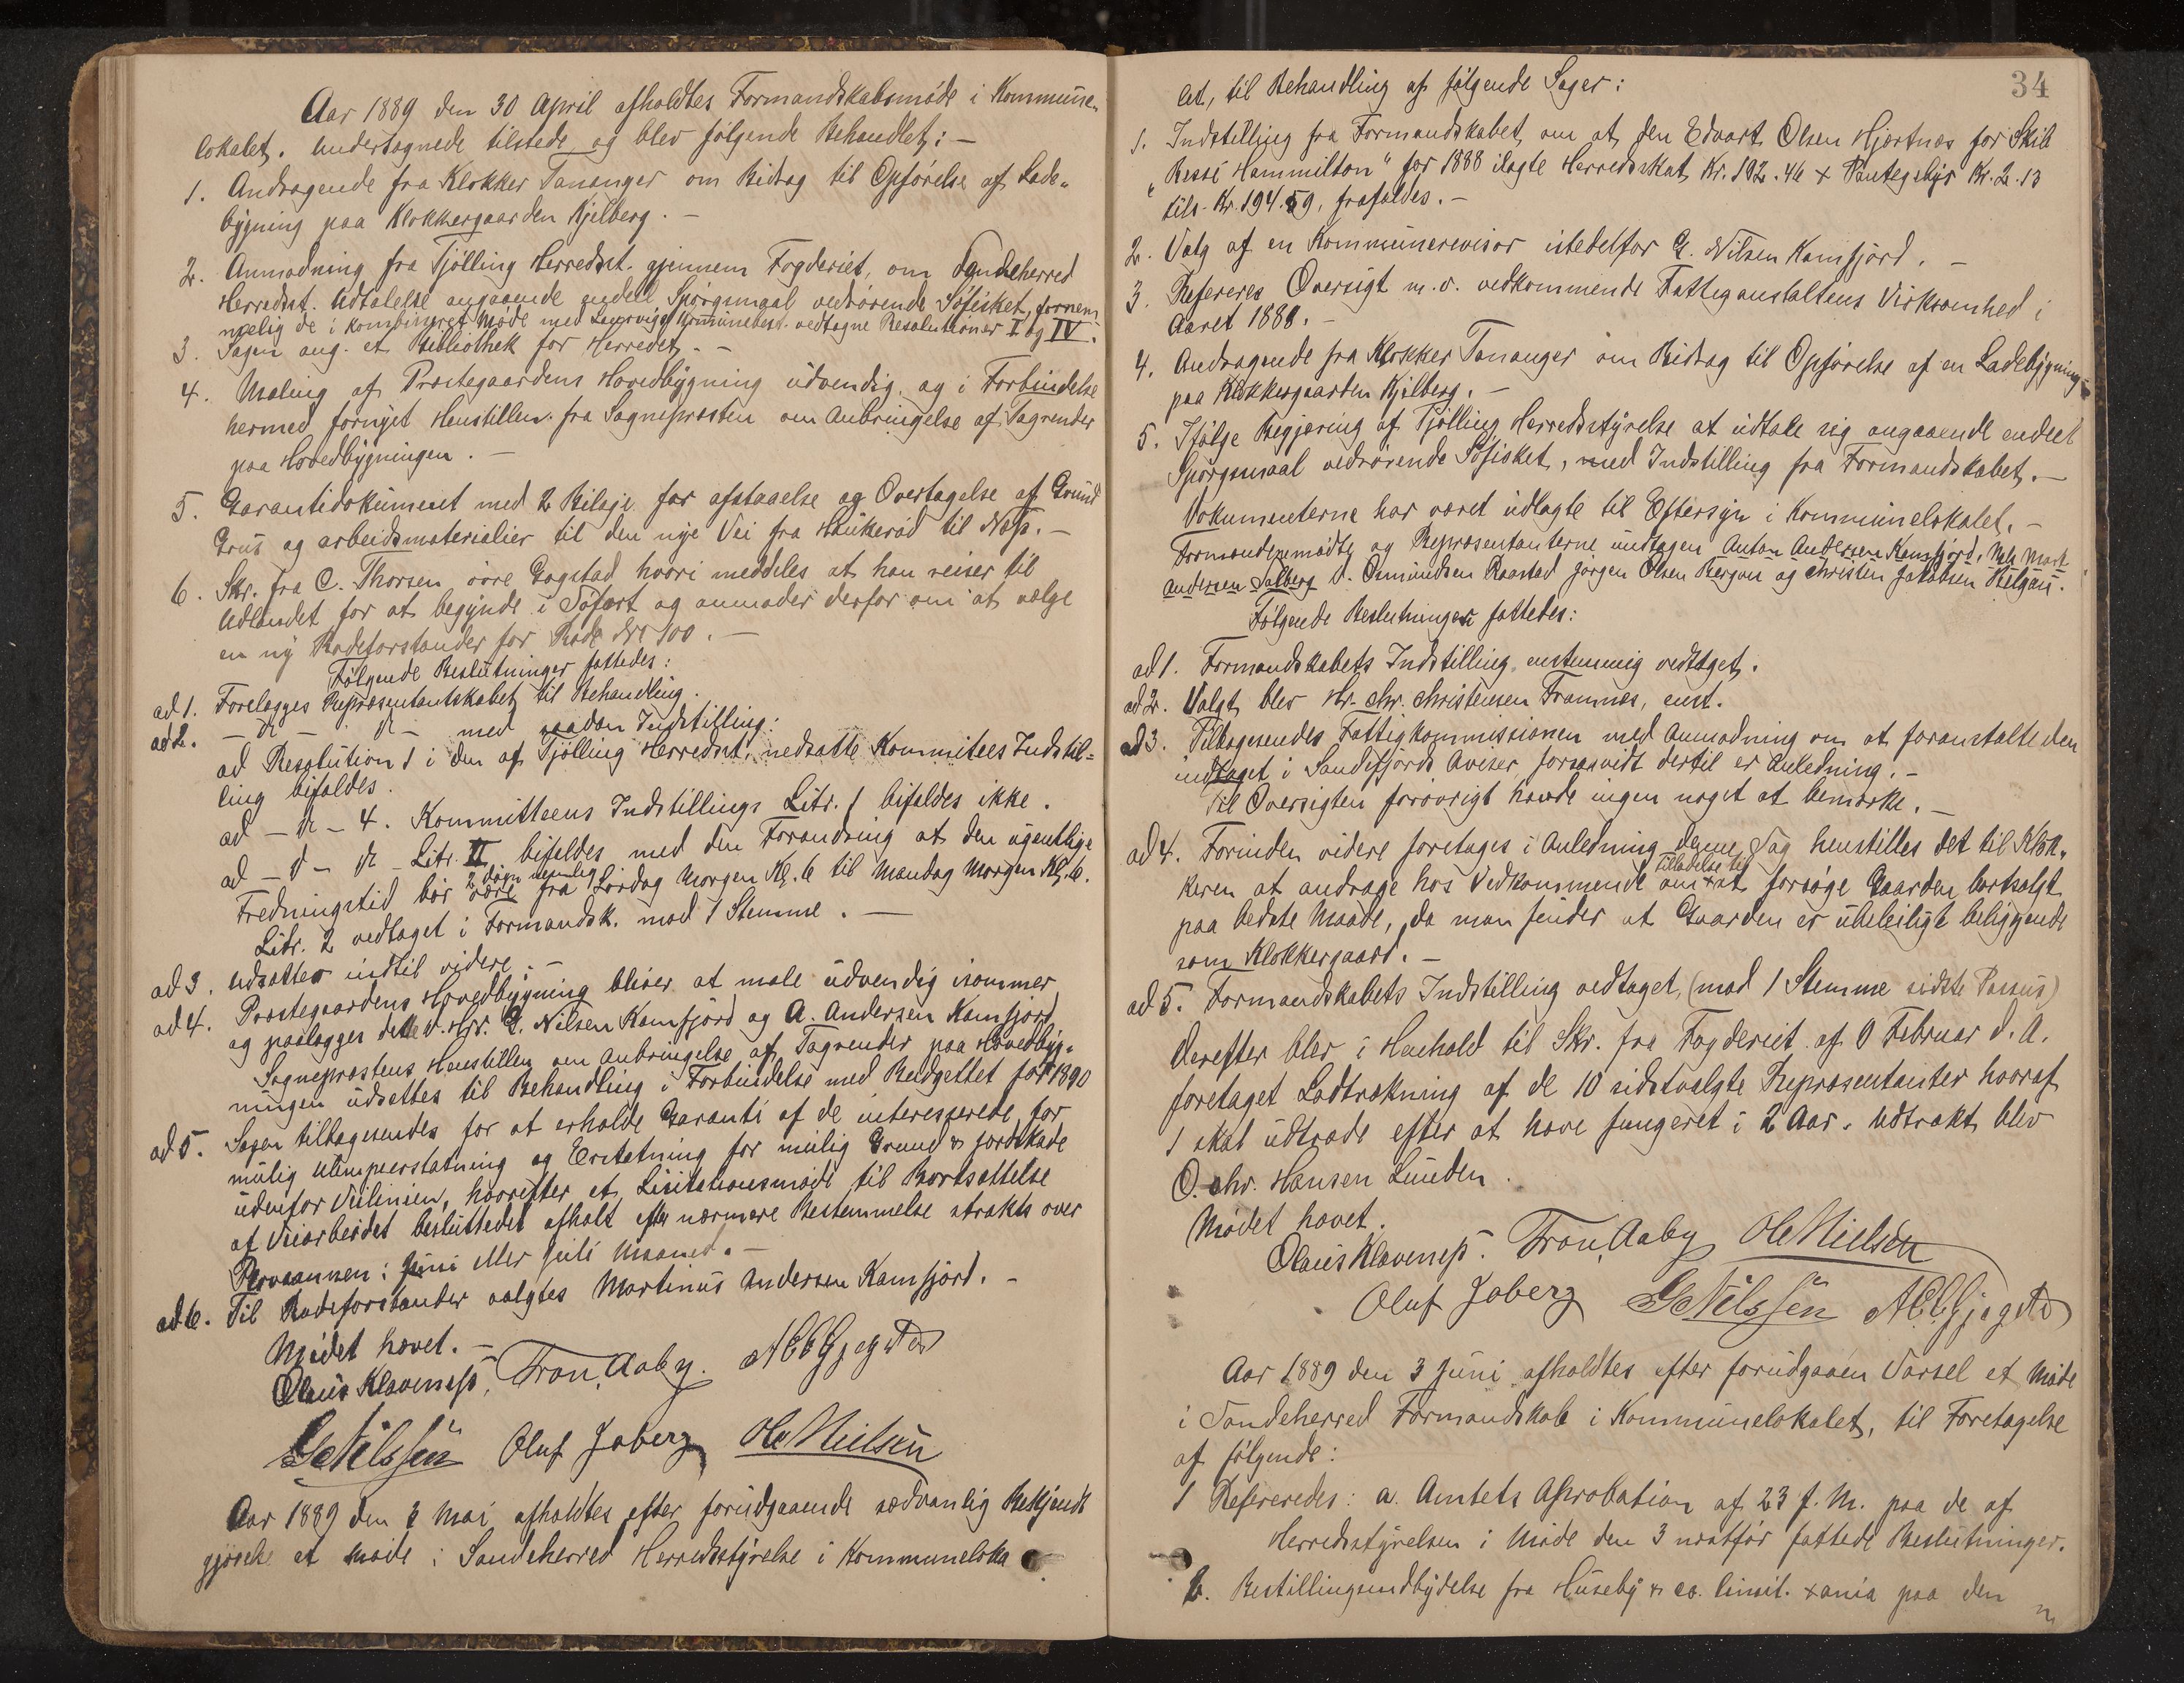 Aar 1889 den 30 April afholdtes Formandskabsmøde i Kommune-
lokalet. Undertegnede tilstede og blev følgende Behandlet: —
1. Andragende fra Klokker Tananger om Bidrag til Opførelse af Lade-
bygning paa Klokkergaarden Kjelberg. —
2. Anmodning fra Tjølling Herredsst. gjennem Fogderiet, om Sandeherred
Herredsst. Udtalelse angaaende endell Spørgsmaal vedrørende Søfisket, fornem
melig de i kombineret Møde med Laurvigs Kommunebest. vedtagne Resolutioner I og IV.
3. Sagen ang. et Bibliothek for Herredet. —
4. Maling af Prestegaardens Hovedbygning udvendig og i Forbindelse
hermed fornyet Henstillen fra Sognepræsten om Anbringelse af Tagrender
paa Hovedbygningen. —
5. Garantidokument med 2 Bilage for afstaaelse og Overtagelse af Grund
Grus og arbeidsmaterialier til den nye Vei fra Haukerød til Næs. —
6. Skr. fra C. Thorsen øvre Gogstad hvori meddeles at han reiser til
Udlandet for at begynde i Søfart og anmoder derfor om at vælge
en ny Rodeforstander for Rode No 100. —
Følgende Beslutninger fattedes:
ad 1. Forelægges Repræsentantskabet til Behandling.
ad 2. — d — d — med saadan Indstilling:
ad Resolution 1 i den af Tjølling Herredsst. nedsatte Kommitees Indstil-
ling bifaldes.
ad — d — 4. Kommitteens Indstillings Litr. 1 bifaldes ikke.
ad — d — d — Litr. II bifaldes med den Forandring at den ugentlige
2 døgn nemlig
Fredningstid bør være fra Lørdag Morgen Kl. 6 til Mandag Morgen Kl. 6.
Litr. 2 vedtaget i Formandsk. mod 1 Stemme. —
ad 3. Udsættes indtil videre. —
ad 4. Prestegaardens Hovedbygning bliver at male udvendig isommer
og paalægges dette d. Hrr. G. Nilsen Kamfjord og A. Andersen Kamfjord
Sognepræstens Henstillen om Anbringelse af Tagrender paa Hovedbyg-
ningen udsættes til Behandling i Forbindelse med Budgettet for 1890
ad 5. Sagen tilbagesendes for at erholde Garanti af de interesserede for
mulig Ulempeerstatning og Erstatning for mulig Grund & Jordskade
udenfor Veilinien, hvorefter et Lisitationsmøde til Bortsættelse
af Veiarbeidet besluttedes afholt efter nærmere Bestemmelse strakts over
Vaaraannen: Juni eller Juli Maaned. —
ad 6. Til Rodeforstander valgtes Martinus Andersen Kamfjord. —
Mødet hævet. —
Olaus Klavenæs. Tron Aaby.
G Nilssen Oluf Joberg Ole Nielsen
Aar 1889 den 3 Mai afholdtes efter forudgaaende sædvanlig Bekjendt
gjørelse et Møde i Sandeherred Herredsstyrelse i Kommuneloka
34
let, til Behandling af følgende Sager:
1. Indstilling fra Formandskabet, om at den Edvart Olsen Hjertnæs for Skib
"Bessi Hammilton" for 1888 ilagte Herredsskat, Kr. 192.46 + Pantegebyr Kr. 2.13
tils. Kr. 194.59, frafaldes. —
2. Valg af en Kommunerevisor istedetfor G. Nilsen Kamfjord. —
3. Refereres Oversigt m. v. vedkommende Fattiganstaltens Virksomhed i
Aaret 1888. —
4. Andragende fra Klokker Tananger om Bidrag til Opførelse af en Ladebygning
paa Klokkergaarden Kjelberg. —
5. Ifølge Begjæring af Tjølling Herredsstyrelse at udtale sig angaaende endeel
Spørgsmaal vedrørende Søfisket, med Indstilling fra Formandskabet. —
Dokumenterne har været udlagte til Eftersyn i Kommunelokalet. —
Formændene mødte og Repræsentanterne undtagen Anton Andersen Kamfjord, Nils Mart.
Andersen Solberg O. Osmundsen Raastad Jørgen Olsen Bergan og Christen Jakobsen Helgau.
Følgende Beslutninger fattedes:
ad 1. Formandskabets Indstilling enstemmig vedtaget.
ad 2. Valgt blev Hr. Chr. Christensen Framnæs, enst.
ad 3. Tilbagesendes Fattigkommissionen med Anmodning om at foranstalte den
indtaget i Sandefjords Aviser forsaavidt dertil er Anledning. —
Til Oversigten forøvrigt havde ingen noget at bemærke. —
ad 4. Forinden videre foretages i Anledning denne Sag henstilles det til Klok-
Tilladelse til
keren at andrage hos Vedkommende om at forsøge Gaarden bortsolgt
paa bedste Maade, da man finder at Gaarden er ubeleiligt beliggende
som Klokkergaard. —
ad 5. Formandskabets Indstilling vedtaget, (mod 1 Stemme sidste Passus)
Derefter blev i Henhold til Skr. fra Fogderiet af 9 Februar d. A.
foretaget Lodtrækning af de 10 sidstvalgte Repræsentanter hvoraf
1 skal udtræde efter at have fungeret i 2 Aar. Udtrakt blev
O. Chr. Hansen Lunden.
Mødet hævet.
Olaus Klavenæs. Tron Aaby Ole Nielsen
Oluf Joberg G Nilssen
Aar 1889 den 3 Juni afholdtes efter forudgaaen Varsel et Møde
i Sandeherred Formandskab i Kommunelokalet, til Foretagelse
af følgende:
1 Refereredes: a. Amtets Aprobation af 23 f. M. paa de af
Herredsstyrelsen i Møde den 3 næstfør fattede Beslutninger.
b. Bestillingsindbydelse fra Huseby & co. limit. Xania paa den